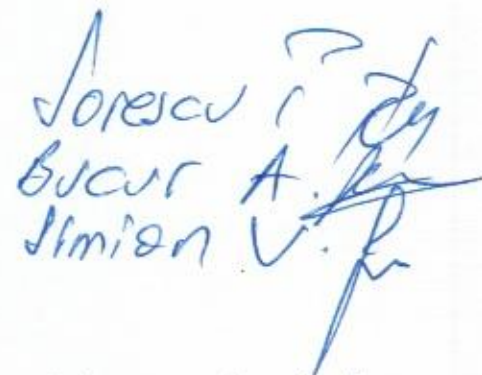 Sorescu I
Bucur A.
Simion V.